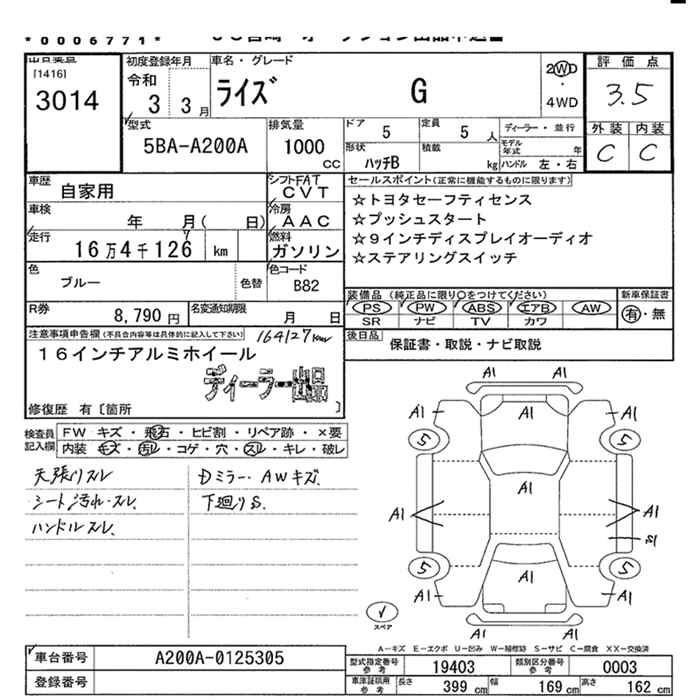 *0006771*
[1416]
3014
初度登録年月
令和
3 3月
車名・グレード
ライズ G
2WD
・
4WD
評価点
3.5
外装 内装
C C
型式
5BA-A200A
排気量
1000
cc
ドア 5
定員 5 人
形状 ハッチB
積載 kg
ディーラー・並行
モデル年式 年
ハンドル 左・右
車歴
自家用
シフト FAT
CVT
車検
年 月( 日)
冷房
AAC
走行
16万4千126 km
7
燃料
ガソリン
色
ブルー
色替
色コード
B82
R券
8,790 円
名変通知期限
月 日
セールスポイント(正常に機能するものに限ります)
☆トヨタセーフティセンス
☆プッシュスタート
☆9インチディスプレイオーディオ
☆ステアリングスイッチ
装備品(純正品に限り○をつけてください)
PS PW ABS エアB AW
SR ナビ TV カワ
新車保証書
有・無
後日品
保証書・取説・ナビ取説
注意事項申告欄(不具合内容等は具体的に記入して下さい)
164127km
16インチアルミホイール
ディーラー出品
修復歴 有〔箇所 〕
検査員記入欄
FW キズ・飛石・ヒビ割・リペア跡・×要
内装 キズ・汚れ・コゲ・穴・スレ・キレ・破レ
天張りスレ
シート汚れ・スレ
ハンドルスレ
Dミラー・AWキズ
下廻りS
A1
A1 A1
5 5
A1
A1 A1
S1
5 5
A1
A1 A1
スペア
A-キズ E-エクボ U-凹み W-補修跡 S-サビ C-腐食 XX-交換済
車台番号
A200A-0125305
登録番号
型式指定番号参考
19403
類別区分番号参考
0003
車庫証明用参考
長さ 399 cm
幅 169 cm
高さ 162 cm